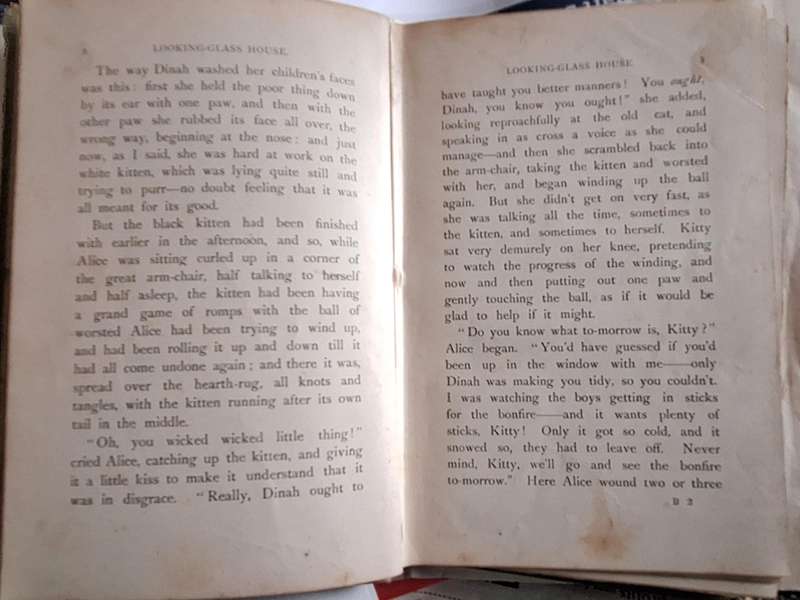 2
LOOKING-GLASS HOUSE.
The way Dinah washed her children's faces
was this: first she held the poor thing down
by its ear with one paw, and then with the
other paw she rubbed its face all over, the
wrong way, beginning at the nose: and just
now, as I said, she was hard at work on the
white kitten, which was lying quite still and
trying to purr—no doubt feeling that it was
all meant for its good.
But the black kitten had been finished
with earlier in the afternoon, and so, while
Alice was sitting curled up in a corner of
the great arm-chair, half talking to herself
and half asleep, the kitten had been having
a grand game of romps with the ball of
worsted Alice had been trying to wind up,
and had been rolling it up and down till it
had all come undone again; and there it was,
spread over the hearth-rug, all knots and
tangles, with the kitten running after its own
tail in the middle.
"Oh, you wicked wicked little thing!"
cried Alice, catching up the kitten, and giving
it a little kiss to make it understand that it
was in disgrace. "Really, Dinah ought to
LOOKING-GLASS HOUSE.
3
have taught you better manners! You ought,
Dinah, you know you ought!" she added,
looking reproachfully at the old cat, and
speaking in as cross a voice as she could
manage—and then she scrambled back into
the arm-chair, taking the kitten and worsted
with her, and began winding up the ball
again. But she didn't get on very fast, as
she was talking all the time, sometimes to
the kitten, and sometimes to herself. Kitty
sat very demurely on her knee, pretending
to watch the progress of the winding, and
now and then putting out one paw and
gently touching the ball, as if it would be
glad to help if it might.
"Do you know what to-morrow is, Kitty?"
Alice began. "You'd have guessed if you'd
been up in the window with me——only
Dinah was making you tidy, so you couldn't.
I was watching the boys getting in sticks
for the bonfire——and it wants plenty of
sticks, Kitty! Only it got so cold, and it
snowed so, they had to leave off. Never
mind, Kitty, we'll go and see the bonfire
to-morrow." Here Alice wound two or three
B 2